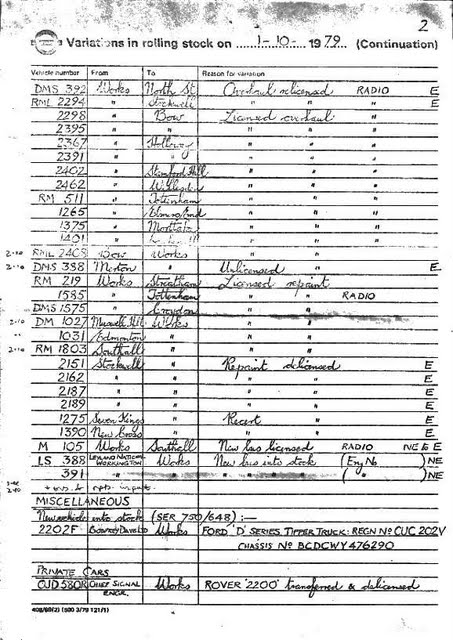 2
Variations in rolling stock on 1-10- 1979 (Continuation)
Vehicle number From To Reason for variation
DMS 392 Works North St. Overhaul relicensed RADIO E
RML 2294 " Stockwell " " " E
2298 " Bow Licensed overhaul "
2395 " " " " "
2367 " Holloway " " "
2391 " " " " "
2402 " Stamford Hill " " "
2462 " Willesden " " "
RM 511 " Tottenham " " "
1265 " Elmers End " " "
1375 " Mortlake " " "
1401 " " " "
2-10 RML 2408 Bow Works " "
DMS 398 Merton " Unlicensed " E
RM 219 Works Streatham Licensed repaint
1585 " Tottenham " " RADIO
DMS 1575 " Croydon " "
2-10 DM 1027 Muswell Hill Works " "
1031 Edmonton " " "
2-10 RM 1803 Southall " " "
2151 Stockwell " Repaint delicensed E
2162 " " " " E
2187 " " " " E
2189 " " " " E
1275 Seven Kings " Recert " E
1390 New Cross " " " E
M 105 Works Southall New bus licensed RADIO NE & E
LS 388 LEYLAND NATIONAL WORKINGTON Works New bus into stock (Eng No )NE
391 " " " " ( " )NE
MISCELLANEOUS
New vehicle into stock (SER 750/648) :—
2202F Works FORD 'D' SERIES TIPPER TRUCK: REGN No CUC 202V
CHASSIS No BCDCWY476290
PRIVATE CARS
OJD 580R CHIEF SIGNAL ENGR. Works ROVER '2200' transferred & delicensed
408/68(2) (500 3/79 121/1)